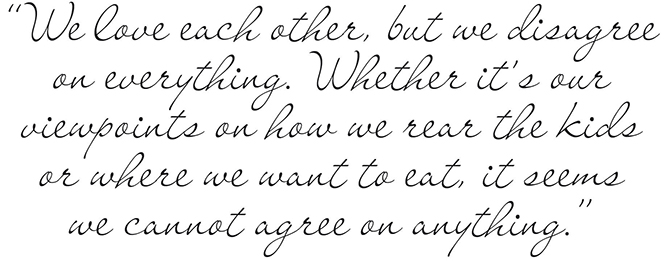 “We love each other, but we disagree
on everything. Whether it's our
viewpoints on how we rear the kids
or where we want to eat, it seems
we cannot agree on anything.”